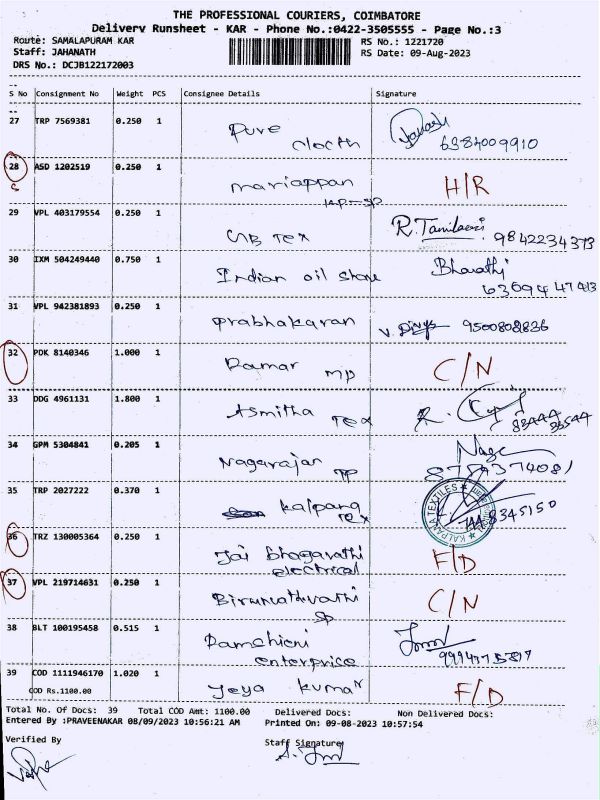 THE PROFESSIONAL COURIERS, COIMBATORE
Delivery Runsheet - KAR - Phone No.:0422-3505555 - Page No.:3
Route: SAMALAPURAM KAR RS No.: 1221720
Staff: JAHANATH RS Date: 09-Aug-2023
DRS No.: DCJB122172003
S No Consignment No Weight PCS Consignee Details Signature
27 TRP 7569381 0.250 1 Pure clocth 6384009910
28 ASD 1202519 0.250 1 mariappan H/R
29 VPL 403179554 0.250 1 CIB Tex R. Tamilarasi 9842234373
30 IXM 504249440 0.750 1 Indian oil store Bharathi 63694 47413
31 VPL 942381893 0.250 1 prabhakaran V. Divya 9500808836
32 PDK 8140346 1.000 1 Ramar mp C/N
33 DDG 4961131 1.800 1 Asmitha Tex
34 GPM 5304841 0.205 1 Nagarajan
35 TRP 2027222 0.370 1 kalpana Tex
KALPANA TEXTILES
36 TRZ 130005364 0.250 1 Jai bhagavathi electrical F/D
37 VPL 219714631 0.250 1 SP C/N
38 BLT 100195458 0.515 1 enterprice
39 COD 1111946170 1.020 1 Jeya kumar F/D
COD Rs.1100.00
Total No. Of Docs: 39 Total COD Amt: 1100.00 Delivered Docs: Non Delivered Docs:
Entered By :PRAVEENAKAR 08/09/2023 10:56:21 AM Printed On: 09-08-2023 10:57:54
Verified By Staff Signature